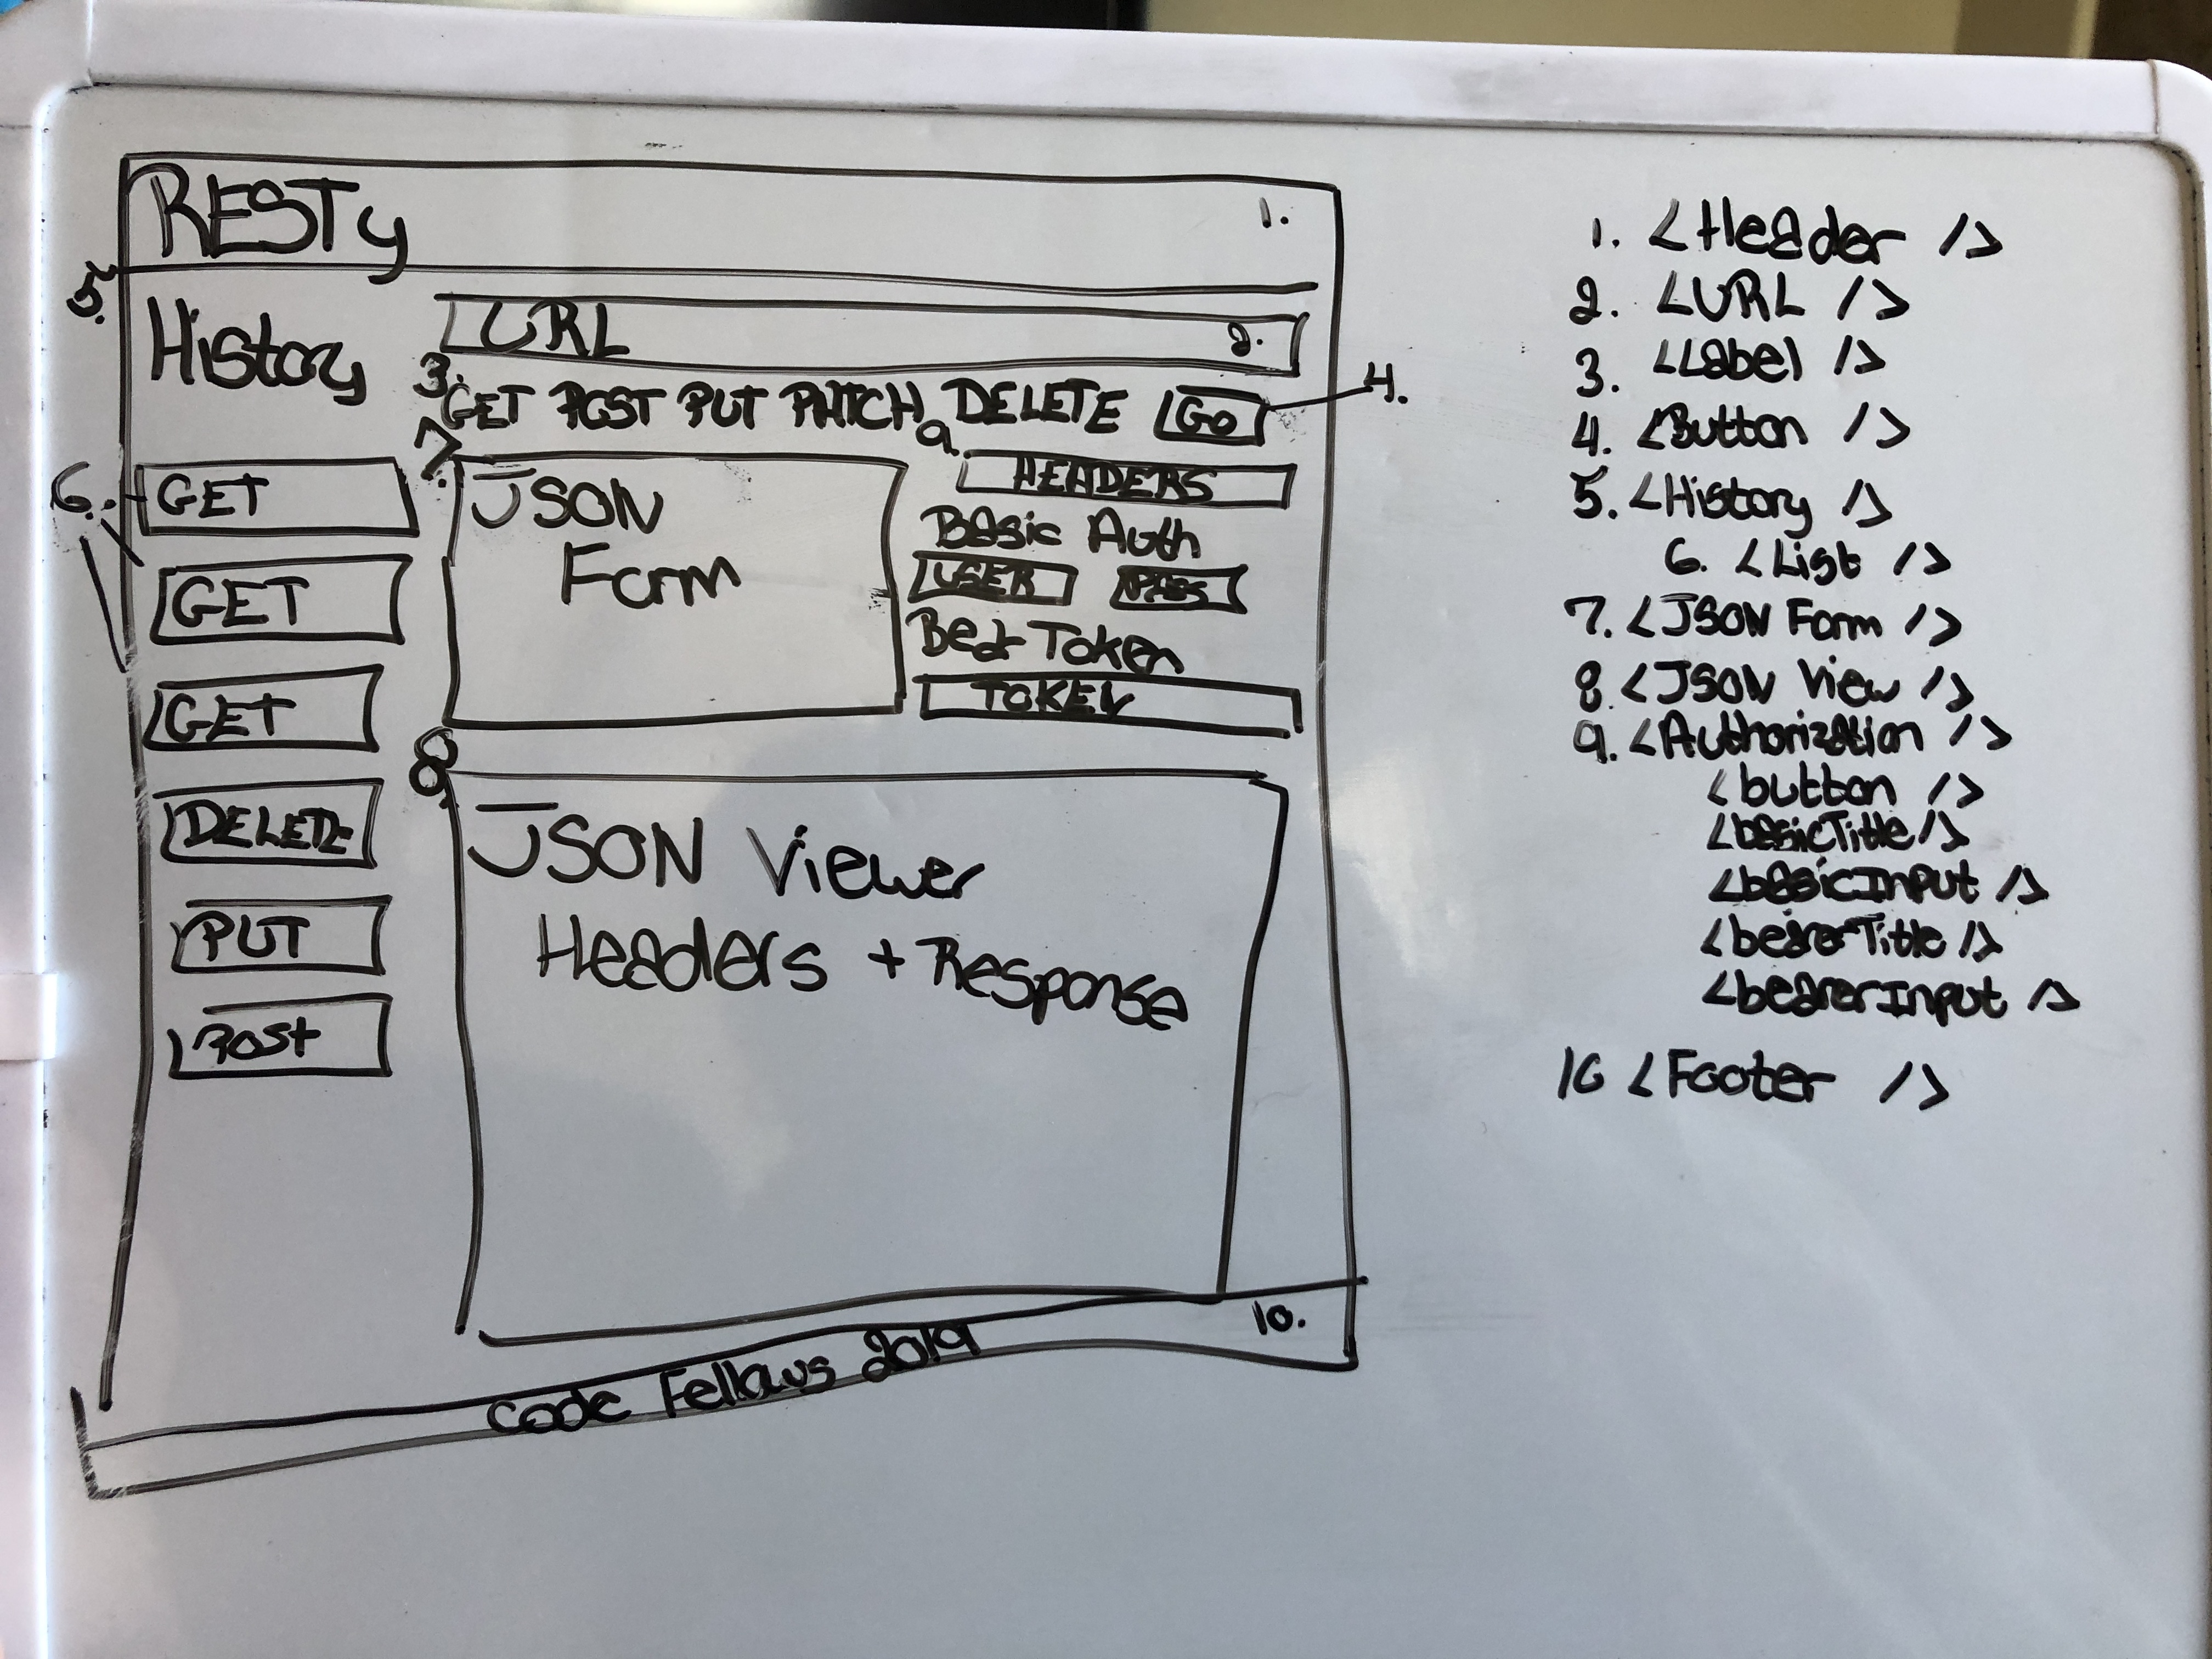 RESTy
1.
5.
History
URL
2.
3.
GET POST PUT PATCH DELETE Go
4.
7.
9.
6.
GET
GET
GET
DELETE
PUT
Post
JSON
Form
HEADERS
Basic Auth
USER PASS
Bear Token
TOKEN
8.
JSON Viewer
Headers + Response
10.
Code Fellows 2019
1. <Header />
2. <URL />
3. <Label />
4. <Button />
5. <History />
6. <List />
7. <JSON Form />
8. <JSON View />
9. <Authorization />
<button />
<basicTitle/>
<basicInput />
<bearerTitle />
<bearerInput />
10 <Footer />